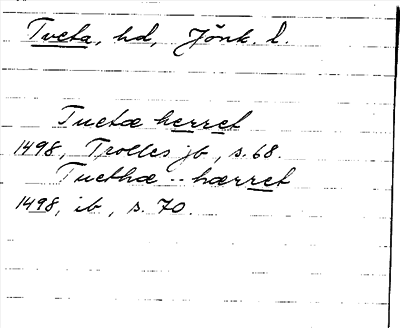 Tveta, hd, Jönk. l.
Tuetæ herret
1498, Trolles jb, s. 68.
Tuethæ -- hærret
1498, ib, s. 70.